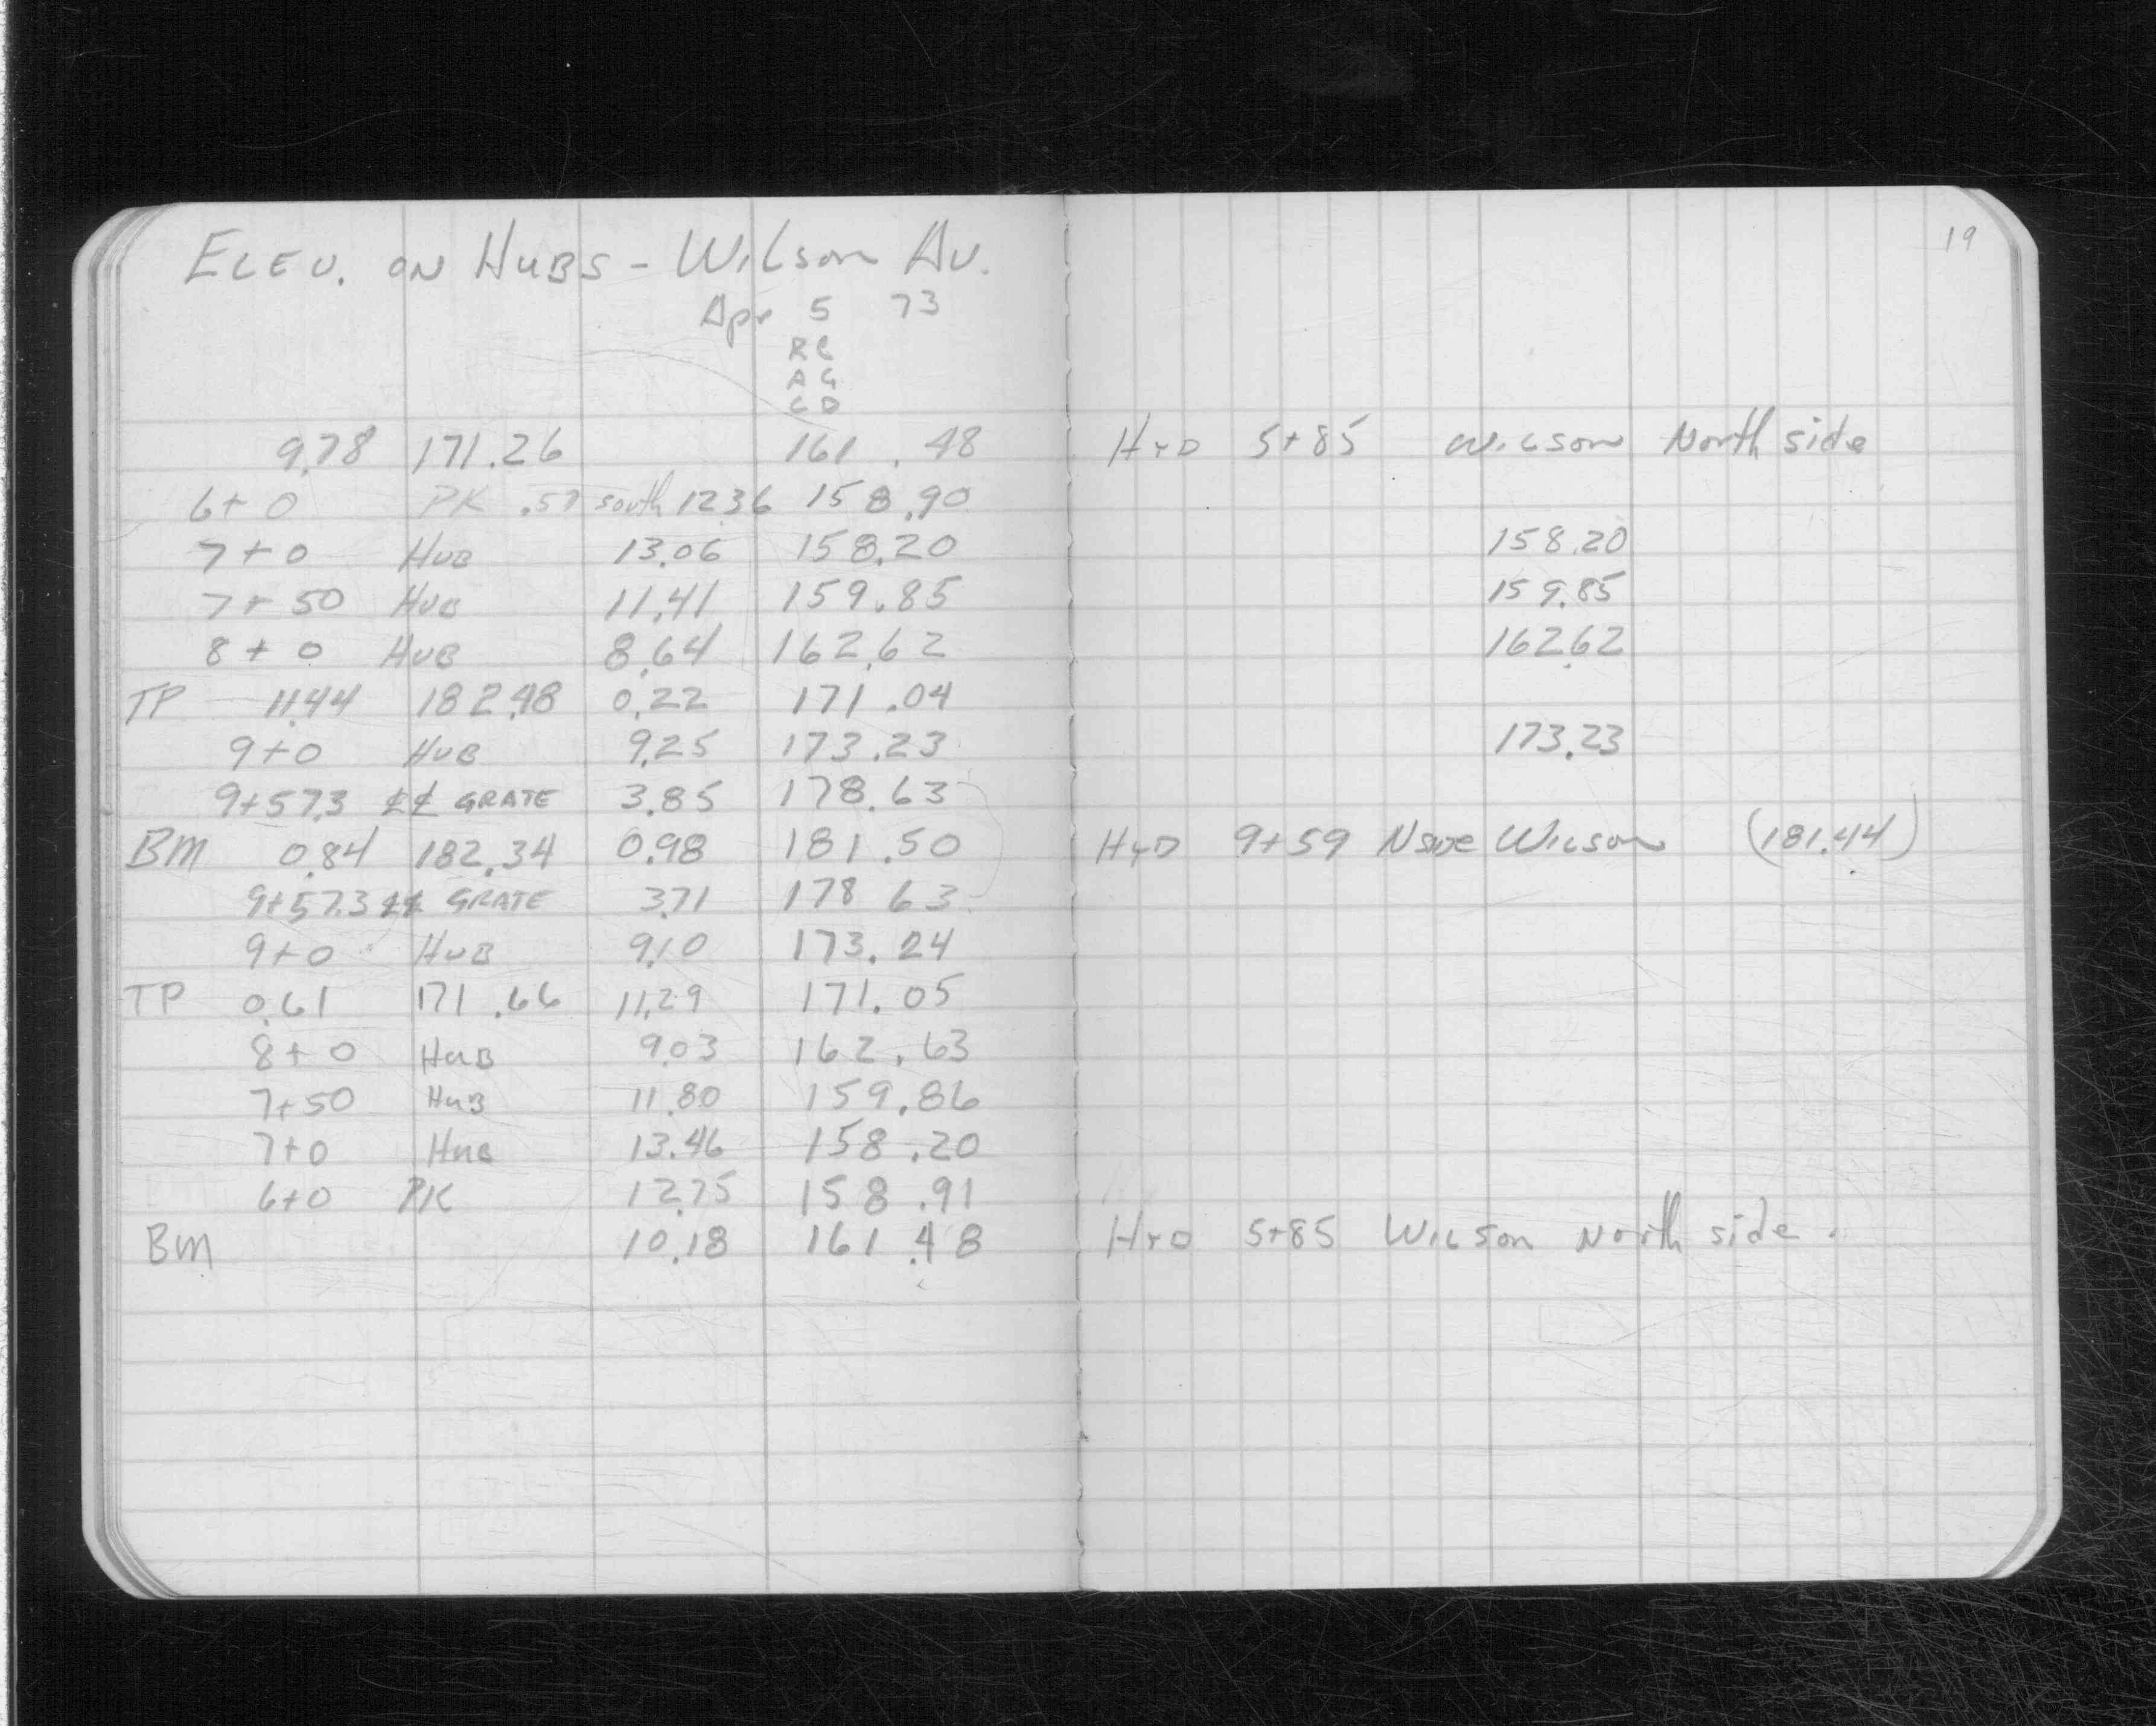 19
ELEV. ON HUBS - Wilson Av.
Apr 5 73
RC
AG
CD
9.78 171.26 161.48 HYD 5+85 Wilson North side
6+0 PK .57 south 12.36 158.90
7+0 HUB 13.06 158.20 158.20
7+50 HUB 11.41 159.85 159.85
8+0 HUB 8.64 162.62 162.62
TP 11.44 182.48 0.22 171.04
9+0 HUB 9.25 173.23 173.23
9+57.3 ȼȼ GRATE 3.85 178.63
BM 0.84 182.34 0.98 181.50 HYD 9+59 Nside Wilson (181.44)
9+57.3 ȼȼ GRATE 3.71 178 63
9+0 HUB 9.10 173.24
TP 0.61 171.66 11.29 171.05
8+0 HUB 9.03 162.63
7+50 HUB 11.80 159.86
7+0 HUB 13.46 158.20
6+0 PK 12.75 158.91
BM 10.18 161.48 HYD 5+85 Wilson North side.